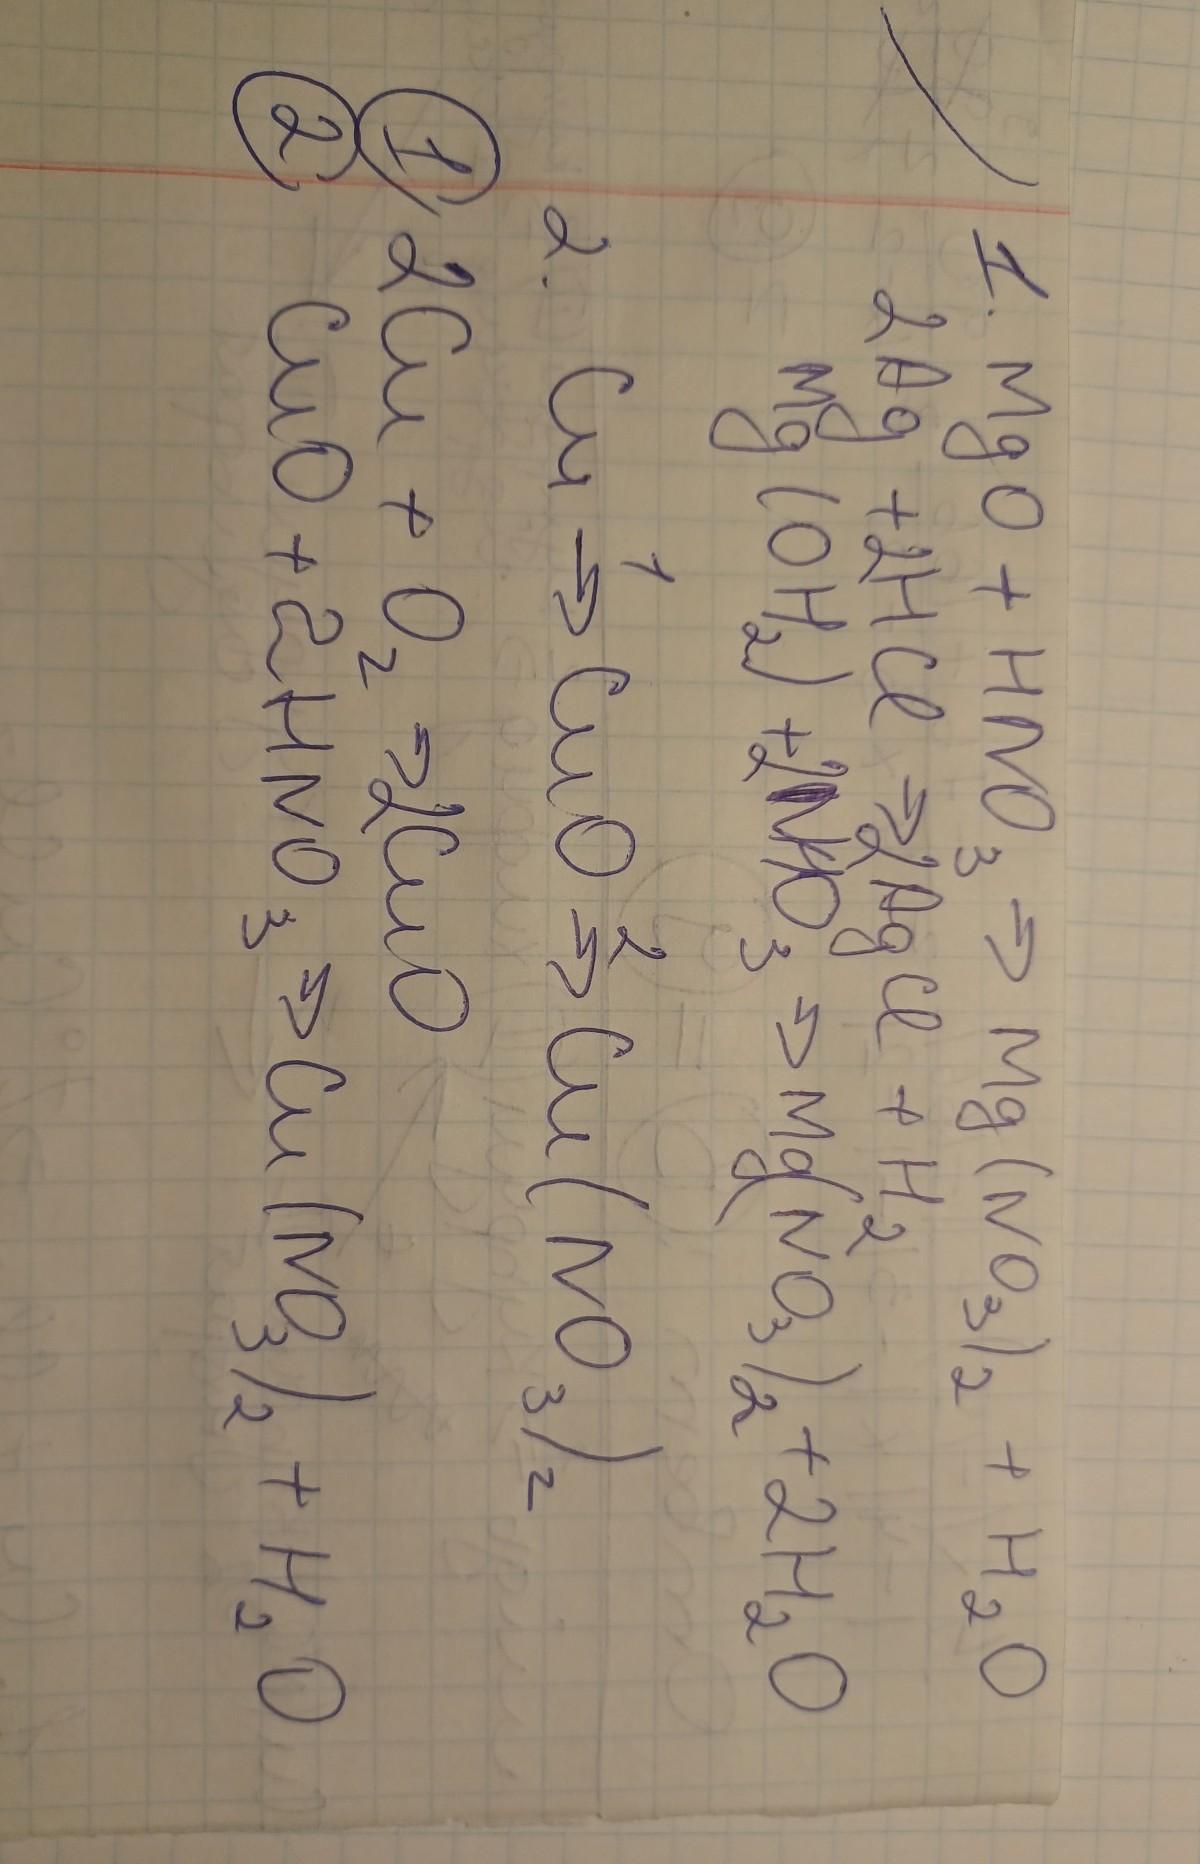 1. MgO + HNO₃ → Mg(NO₃)₂ + H₂O
2Ag + 2HCl → 2AgCl + H₂
Mg(OH₂) + 2HNO₃ → Mg(NO₃)₂ + 2H₂O
2. Cu →¹ CuO →² Cu(NO₃)₂
1) 2Cu + O₂ → 2CuO
2) CuO + 2HNO₃ → Cu(NO₃)₂ + H₂O